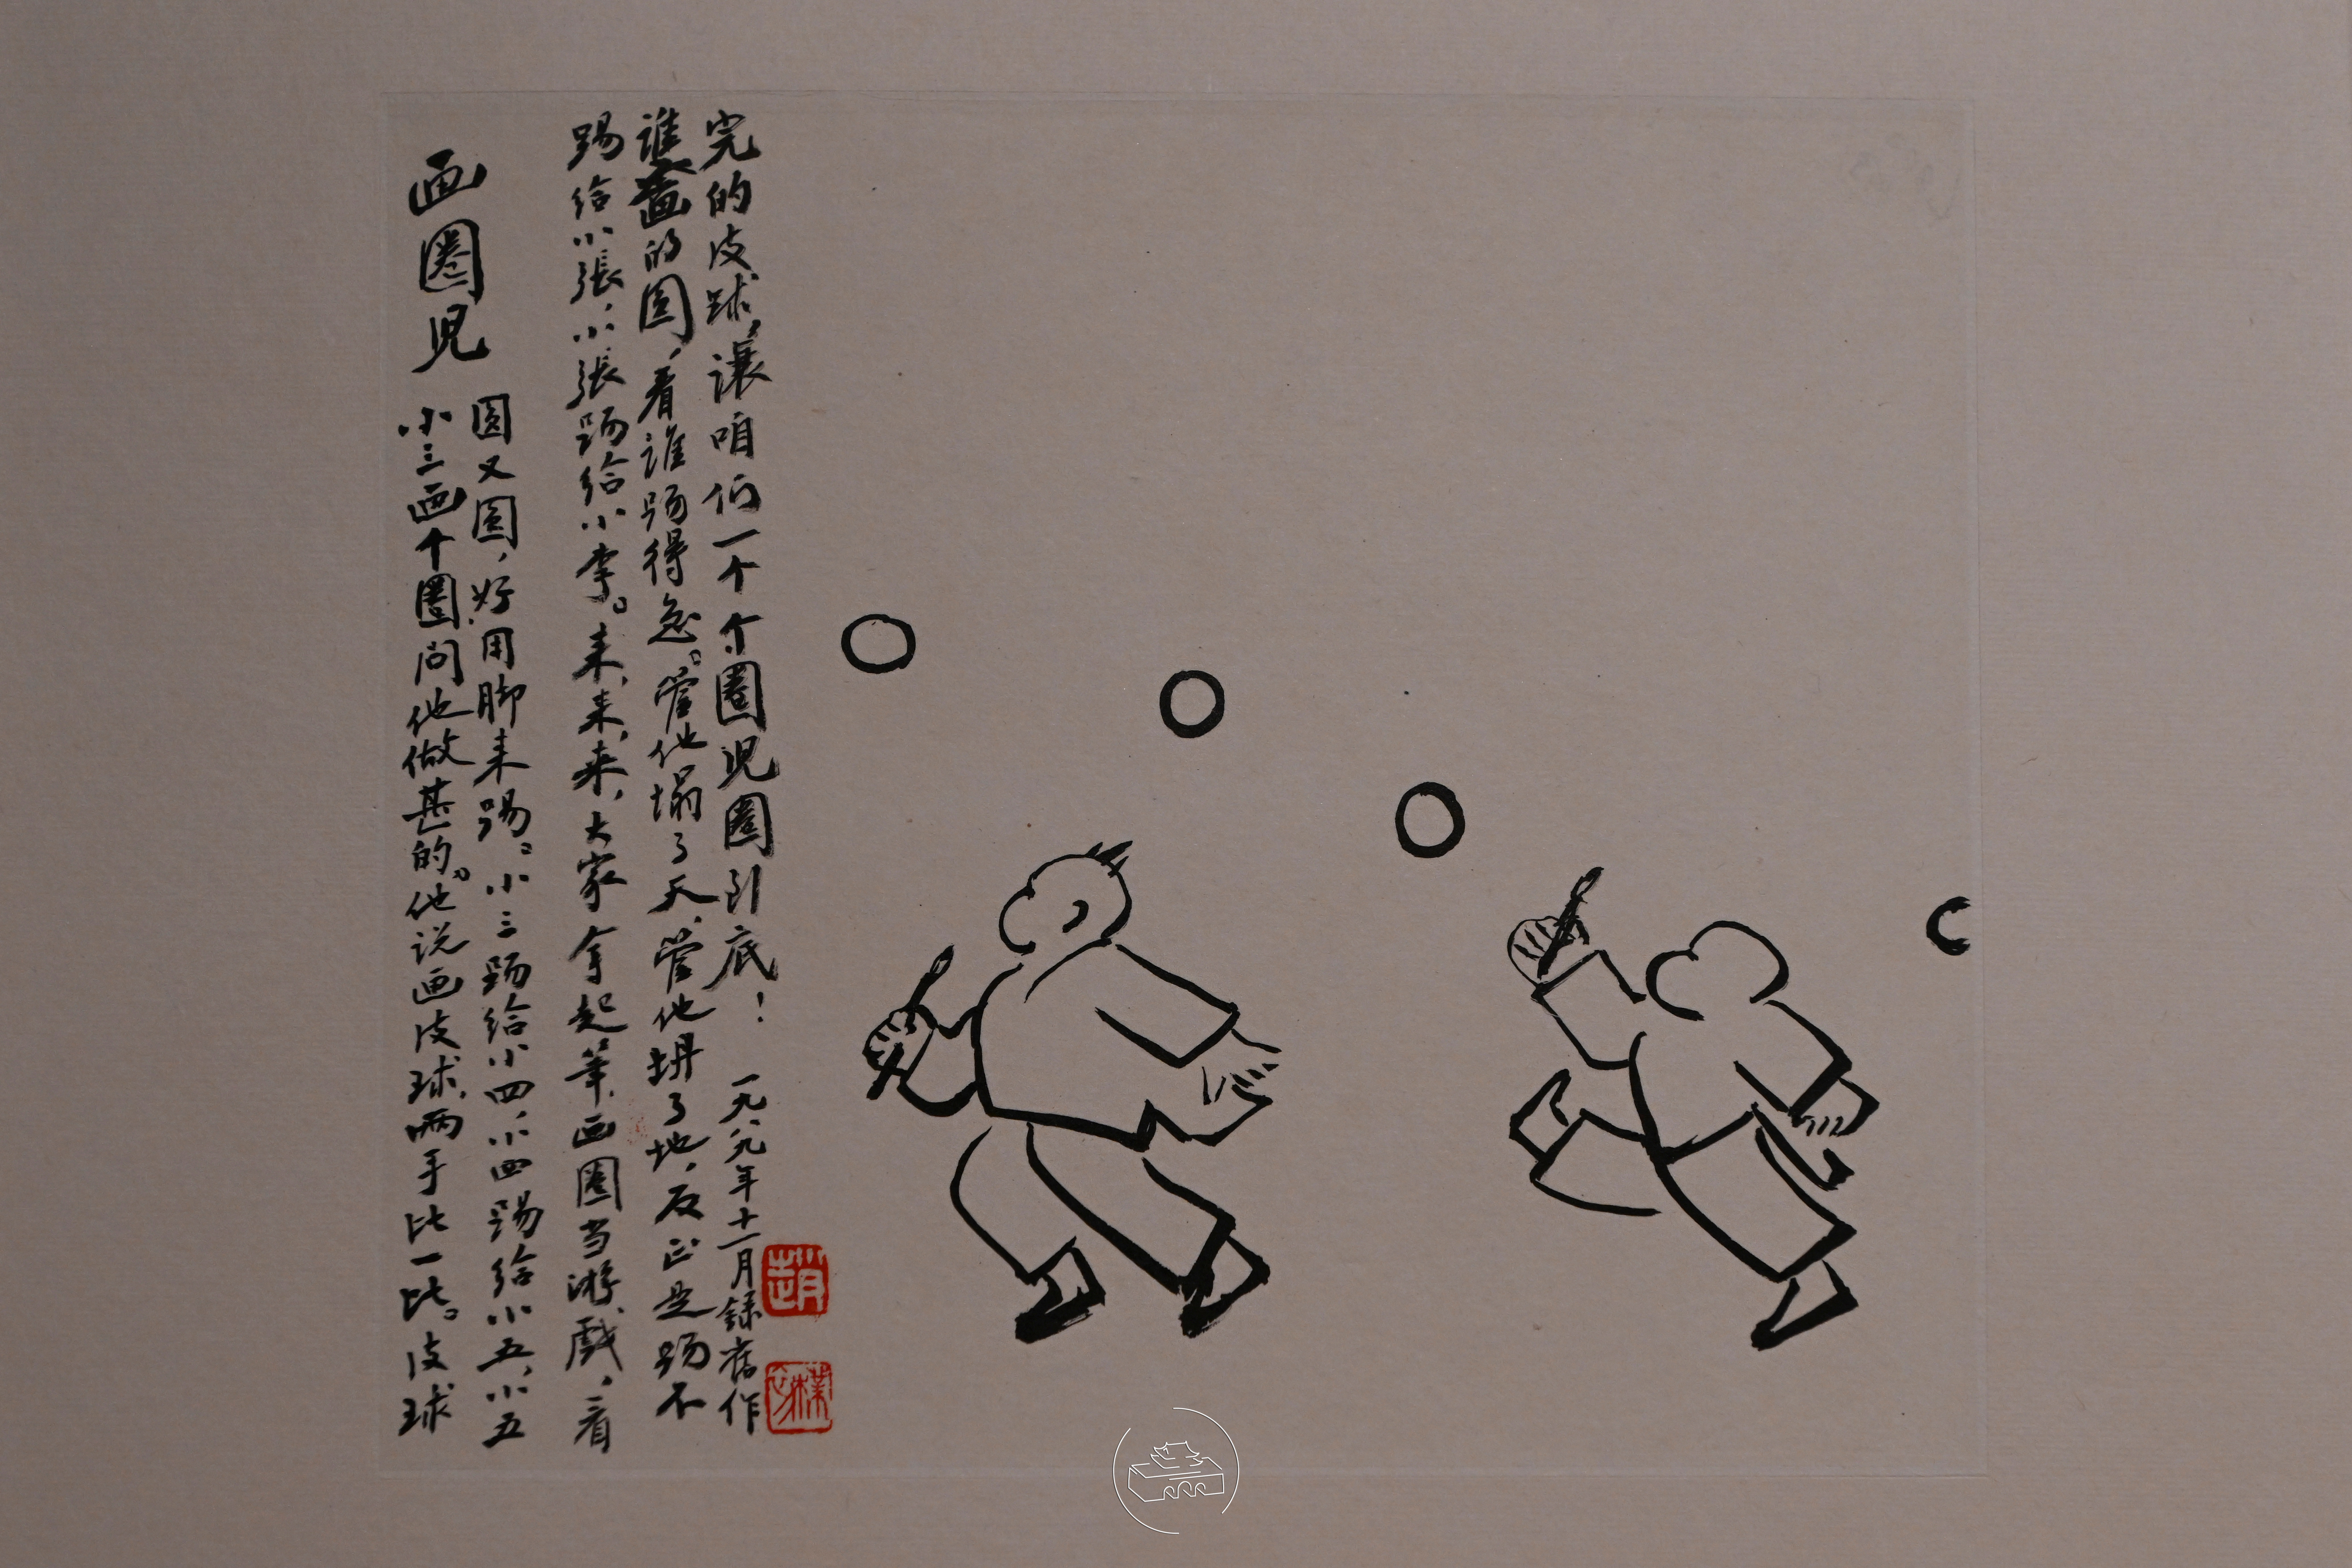 画圈児
小三画个圈,问他做甚的。他说画皮球,两手比一比。皮球
圆又圆,好用脚来踢。小三踢给小四,小四踢给小五,小五
踢给小張,小張踢给小李。来,来,来,大家拿起筆,画圈当游戲,看
谁畫的圆,看谁踢得急。管他塌了天,管他坍了地,反正是踢不
完的皮球,讓咱们一个个圈児圈到底!
一九八九年十一月録舊作
趙